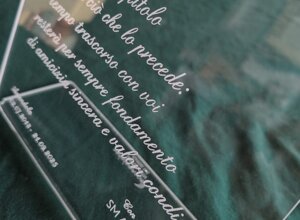 pitolo
ciò che lo precede:
tempo trascorso con voi
resterà per sempre fondamento
di amicizia sincera e valori condi
Con
SM